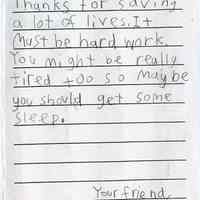 Thanks for saving
a lot of lives. It
Must be hard work.
You might be really
tired too so maybe
you should get some
sleep.
Your friend,